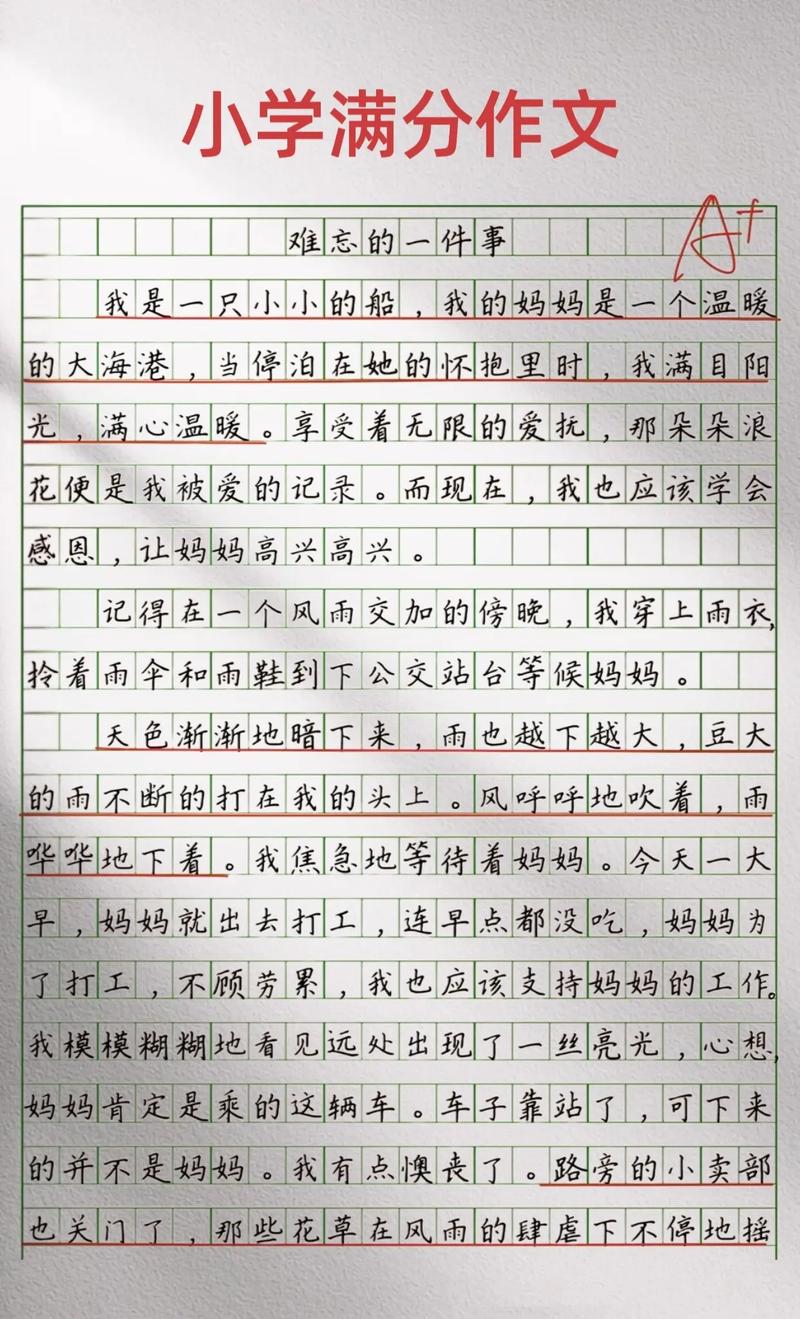 小学满分作文
A+
难忘的一件事
我是一只小小的船，我的妈妈是一个温暖
的大海港，当停泊在她的怀抱里时，我满目阳
光，满心温暖。享受着无限的爱抚，那朵朵浪
花便是我被爱的记录。而现在，我也应该学会
感恩，让妈妈高兴高兴。
记得在一个风雨交加的傍晚，我穿上雨衣，
拎着雨伞和雨鞋到下公交站台等候妈妈。
天色渐渐地暗下来，雨也越下越大，豆大
的雨不断的打在我的头上。风呼呼地吹着，雨
哗哗地下着。我焦急地等待着妈妈。今天一大
早，妈妈就出去打工，连早点都没吃，妈妈为
了打工，不顾劳累，我也应该支持妈妈的工作。
我模模糊糊地看见远处出现了一丝亮光，心想，
妈妈肯定是乘的这辆车。车子靠站了，可下来
的并不是妈妈。我有点懊丧了。路旁的小卖部
也关门了，那些花草在风雨的肆虐下不停地摇